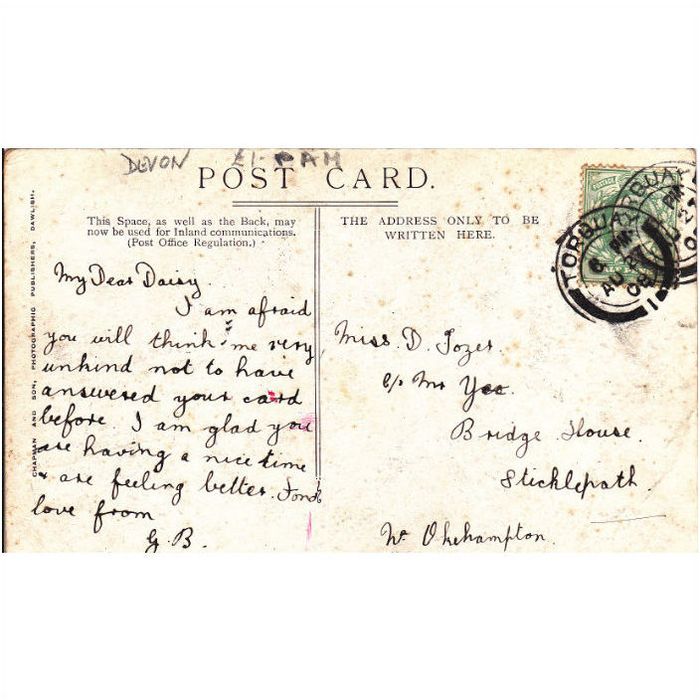 DEVON
POST CARD.
This Space, as well as the Back, may
now be used for Inland communications.
(Post Office Regulation.)
THE ADDRESS ONLY TO BE
WRITTEN HERE.
CHAPMAN AND SON, PHOTOGRAPHIC PUBLISHERS, DAWLISH.
My Dear Daisy.
I am afraid
you will think me very
unkind not to have
answered your card
before. I am glad you
are having a nice time
& are feeling better. Fond
love from
G. B.
Miss. D. Tozer.
c/o Mr Yeo.
Bridge House.
Sticklepath.
Nr Okehampton.
TORQUAY
6 PM
AU 27